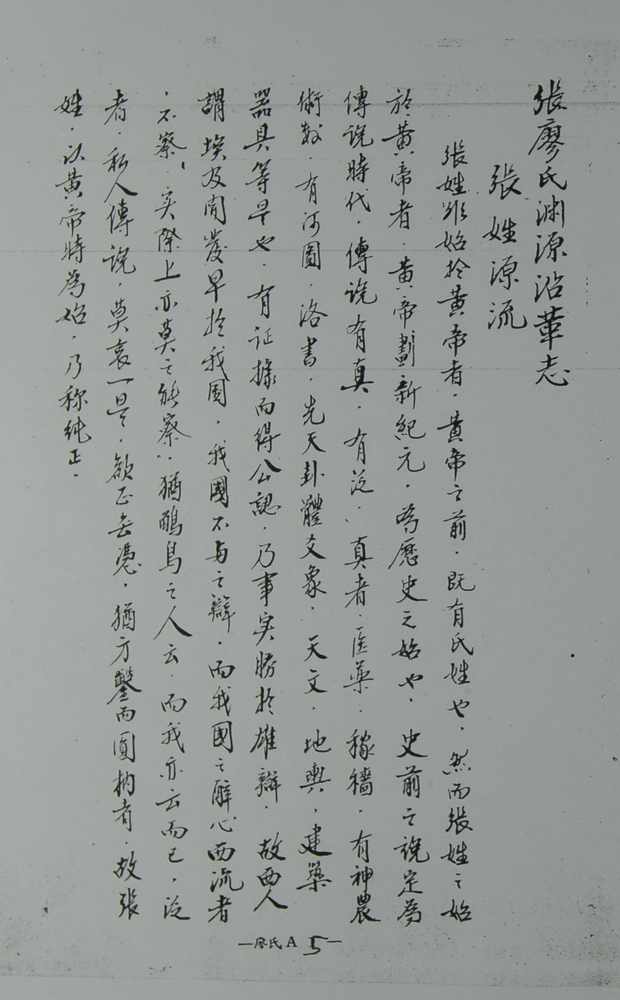 張廖氏渊源沿革志
張姓源流
張姓雖始於黄帝者．黄帝之前．既有氏姓也．然而張姓之始
於黄帝者．黄帝劃新紀元．為歷史之始也．史前之說定為
傳說時代．傳說有真．有泛．真者．医藥．稼穡．有神農
術数．有河圖．洛書．先天卦體爻象．天文．地輿．建築
器具等早也．有証據而得公認．乃事实勝於雄辯．故西人
謂埃及開發早於我国．我國不与之辯．而我國之醉心西流者
不察．实際上亦莫之能察．猶鴟鳥之人云．而我亦云而已．泛
者．私人傳說．莫衷一是．欲正無憑．猶方鑿而圓枘者．故張
姓．以黄帝時為始．乃称純正．
—廖氏A 5—